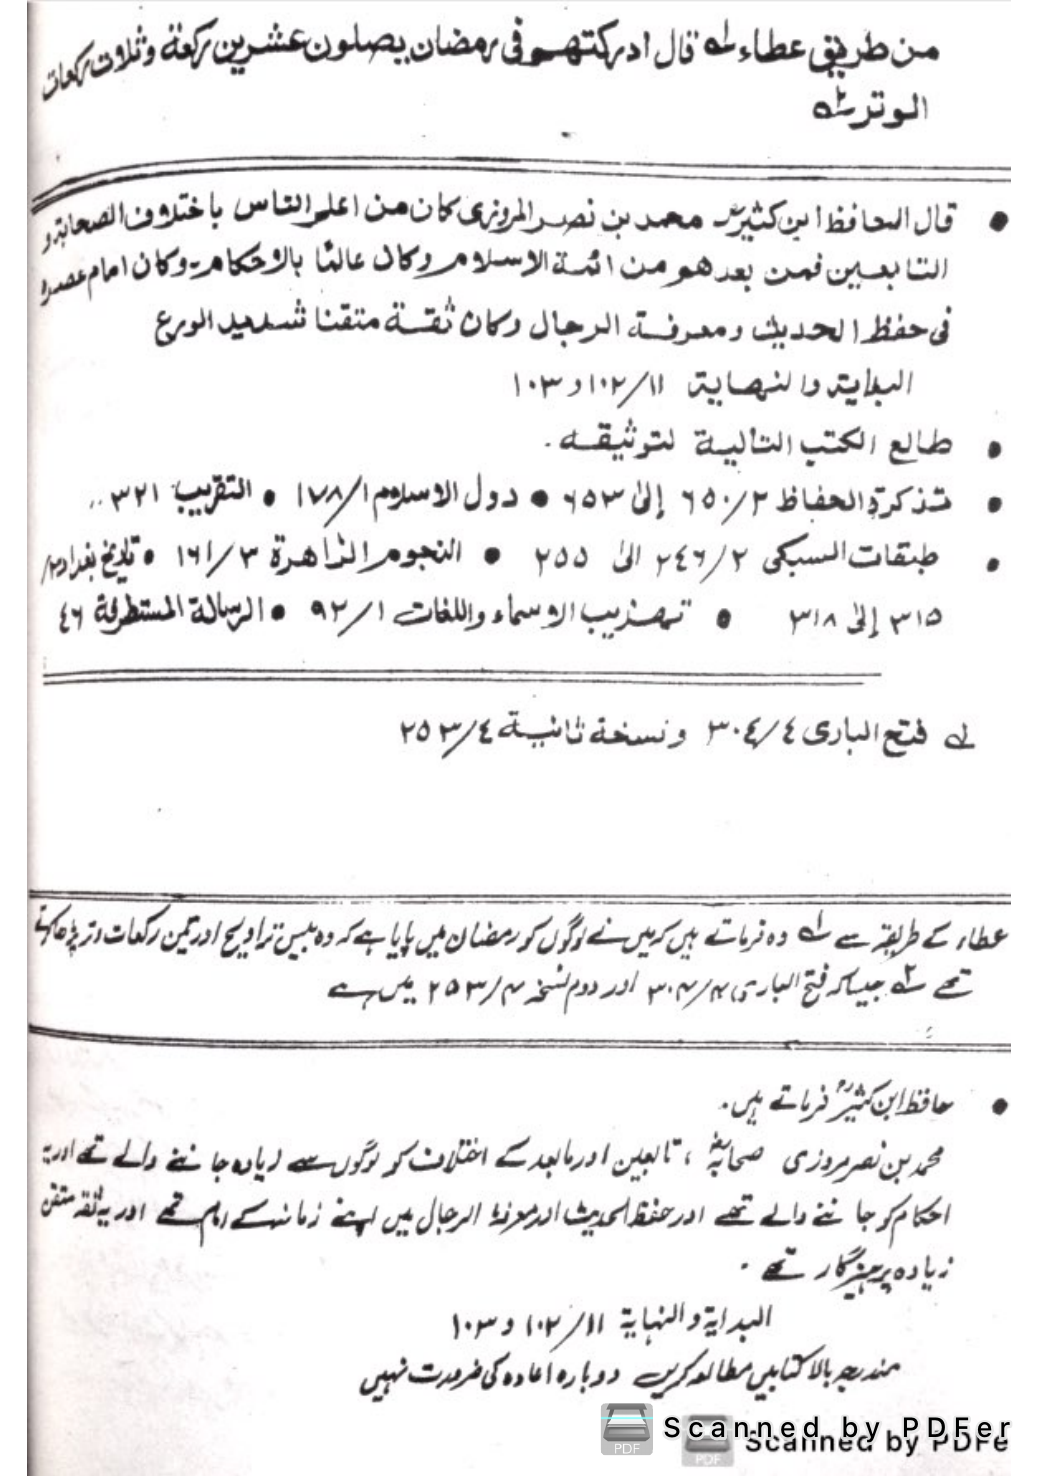 من طريق عطاء له قال ادركتهم فى رمضان يصلون عشرين ركعة وثلاث ركعات
الوتر له
● قال الحافظ ابن كثير محمد بن نصر المروزى كان من اعلم الناس باختلاف الصحابة و
التابعين فمن بعدهم من ائمة الاسلام وكان عالمًا بالاحكام ـ وكان امام عصره
فى حفظ الحديث ومعرفة الرجال وكان ثقة متقنا شديد الورع
البداية والنهاية ١١/١٠٢ و ١٠٣
● طالع الكتب التالية لتوثيقه ۔
● تذكرة الحفاظ ٢/٦٥٠ إلى ٦٥٣ ● دول الاسلام ١/١٧٨ ● التقريب ٣٢١
● طبقات السبكى ٢/٢٤٦ الى ٢٥٥ ● النجوم الزاهرة ٣/١٦١ ● تاريخ بغداد ٣/
٣١٥ إلى ٣١٨ ● تهذيب الاسماء واللغات ١/٩٢ ● الرسالة المستطرفة ٤٦
له فتح البارى ٤/٣٠٤ ونسخة ثانية ٤/٢٥٣
عطاء کے طریقہ سے لہ وہ فرماتے ہیں کہ میں نے لوگوں کو رمضان میں پایا ہے کہ وہ بیس تراویح اور تین رکعات وتر پڑھا کرتے
تھے لہ جیسا کہ فتح الباری ۴/۳۰۴ اور دوم نسخہ ۴/۲۵۳ میں ہے
● حافظ ابن کثیرؒ فرماتے ہیں ۔
محمد بن نصر مروزی صحابہؓ ، تابعین اور مابعد کے اختلاف کو لوگوں سے زیادہ جاننے والے تھے اور یہ
احکام کو جاننے والے تھے اور حفظ الحدیث اور معرفۃ الرجال میں اپنے زمانہ کے امام تھے اور یہ ثقہ متقن
زیادہ پرہیزگار تھے ۔
البدایۃ والنہایۃ ۱۱/۱۰۲ و ۱۰۳
مندرجہ بالا کتابیں مطالعہ کریں دوبارہ اعادہ کی ضرورت نہیں
PDF Scanned by PDFer
PDF Scanned by PDFe